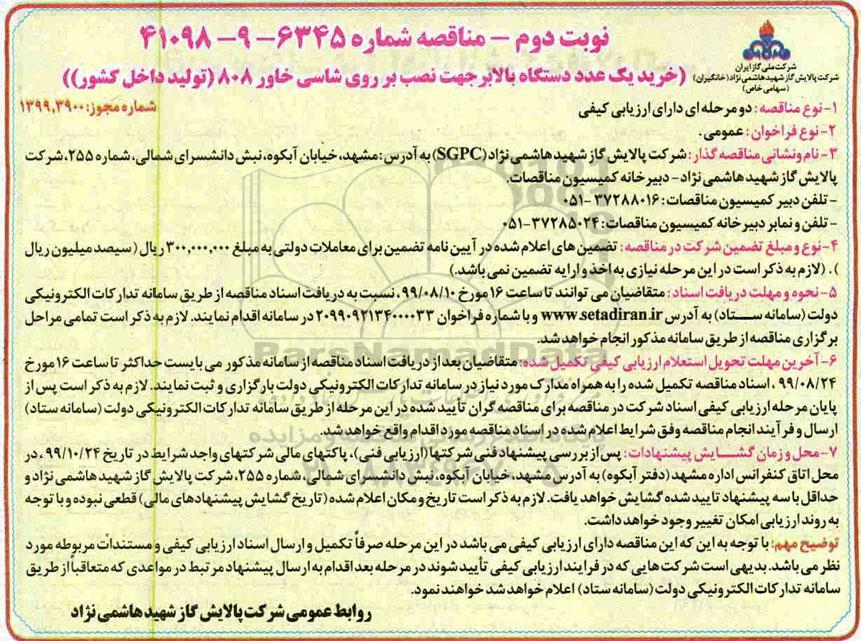 نوبت دوم - مناقصه شماره ۶۳۴۵-۹-۴۱۰۹۸
شرکت ملی گاز ایران
شرکت پالایش گاز شهید هاشمی نژاد (خانگیران)
(سهامی خاص)
(خرید یک عدد دستگاه بالابر جهت نصب بر روی شاسی خاور ۸۰۸ (تولید داخل کشور))
شماره مجوز: ۱۳۹۹,۳۹۰۰
۱- نوع مناقصه: دو مرحله ای دارای ارزیابی کیفی
۲- نوع فراخوان: عمومی.
۳- نام ونشانی مناقصه گذار: شرکت پالایش گاز شهید هاشمی نژاد (SGPC) به آدرس: مشهد، خیابان آبکوه، نبش دانشسرای شمالی، شماره ۲۵۵، شرکت
پالایش گاز شهید هاشمی نژاد - دبیرخانه کمیسیون مناقصات.
- تلفن دبیر کمیسیون مناقصات: ۳۷۲۸۸۰۱۶-۰۵۱
- تلفن و نمابر دبیرخانه کمیسیون مناقصات: ۳۷۲۸۵۰۲۴-۰۵۱
۴- نوع و مبلغ تضمین شرکت در مناقصه: تضمین های اعلام شده در آیین نامه تضمین برای معاملات دولتی به مبلغ ۳۰۰,۰۰۰,۰۰۰ ریال (سیصد میلیون ریال
). (لازم به ذکر است در این مرحله نیازی به اخذ و ارایه تضمین نمی باشد.)
۵- نحوه و مهلت دریافت اسناد: متقاضیان می توانند تا ساعت ۱۶ مورخ ۹۹/۰۸/۱۰، نسبت به دریافت اسناد مناقصه از طریق سامانه تدارکات الکترونیکی
دولت (سامانه ستاد) به آدرس www.setadiran.ir و با شماره فراخوان ۲۰۹۹۰۹۲۱۳۴۰۰۰۰۳۳ در سامانه اقدام نمایند. لازم به ذکر است تمامی مراحل
برگزاری مناقصه از طریق سامانه مذکور انجام خواهد شد.
۶- آخرین مهلت تحویل استعلام ارزیابی کیفی تکمیل شده: متقاضیان بعد از دریافت اسناد مناقصه از سامانه مذکور می بایست حداکثر تا ساعت ۱۶ مورخ
۹۹/۰۸/۲۴ ، اسناد مناقصه تکمیل شده را به همراه مدارک مورد نیاز در سامانه تدارکات الکترونیکی دولت بارگزاری و ثبت نمایند. لازم به ذکر است پس از
پایان مرحله ارزیابی کیفی اسناد شرکت در مناقصه برای مناقصه گران تأیید شده در این مرحله از طریق سامانه تدارکات الکترونیکی دولت (سامانه ستاد)
ارسال و فرآیند انجام مناقصه وفق شرایط اعلام شده در اسناد مناقصه مورد اقدام واقع خواهد شد.
۷- محل و زمان گشایش پیشنهادات: پس از بررسی پیشنهاد فنی شرکتها (ارزیابی فنی)، پاکتهای مالی شرکتهای واجد شرایط در تاریخ ۹۹/۱۰/۲۴، در
محل اتاق کنفرانس اداره مشهد (دفتر آبکوه) به آدرس مشهد، خیابان آبکوه، نبش دانشسرای شمالی، شماره ۲۵۵، شرکت پالایش گاز شهید هاشمی نژاد و
حداقل با سه پیشنهاد تایید شده گشایش خواهد یافت. لازم به ذکر است تاریخ و مکان اعلام شده (تاریخ گشایش پیشنهادهای مالی) قطعی نبوده و با توجه
به روند ارزیابی امکان تغییر وجود خواهد داشت.
توضیح مهم: با توجه به این که این مناقصه دارای ارزیابی کیفی می باشد در این مرحله صرفاً تکمیل و ارسال اسناد ارزیابی کیفی و مستندات مربوطه مورد
نظر می باشد. بدیهی است شرکت هایی که در فرایند ارزیابی کیفی تأیید شوند در مرحله بعد اقدام به ارسال پیشنهاد مرتبط در مواعدی که متعاقباً از طریق
سامانه تدارکات الکترونیکی دولت (سامانه ستاد) اعلام خواهد شد خواهند نمود.
روابط عمومی شرکت پالایش گاز شهید هاشمی نژاد
ParsNamadData
پایگاه اطلاع رسانی مناقصه و مزایده